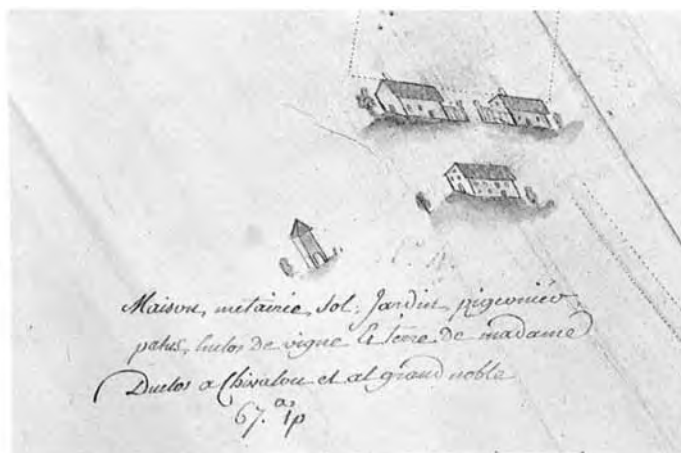 Maison, metairie, sol, Jardin, pigeonier
patus, de vigne & terre de madame
Duclos a Chivalou et al grand noble
67. a 1 p